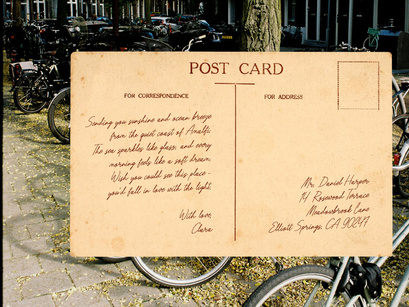 POST CARD
FOR CORRESPONDENCE
Sending you sunshine and ocean breeze
from the quiet coast of Amalfi.
The sea sparkles like glass, and every
morning feels like a soft dream.
Wish you could see this place -
you'd fall in love with the light
With love,
Clara
FOR ADDRESS
Mr. Daniel Harper
14 Rosewood Terrace
Meadowbrook Lane
Elliott Springs, CA 90247